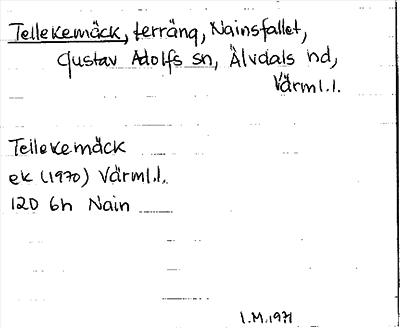 Tellekemäck, terräng, Nainsfallet,
Gustav Adolfs sn, Älvdals hd,
Värml.l.
Tellekemäck
ek (1970) Värml.l.
12D 6h Nain
I.M. 1971